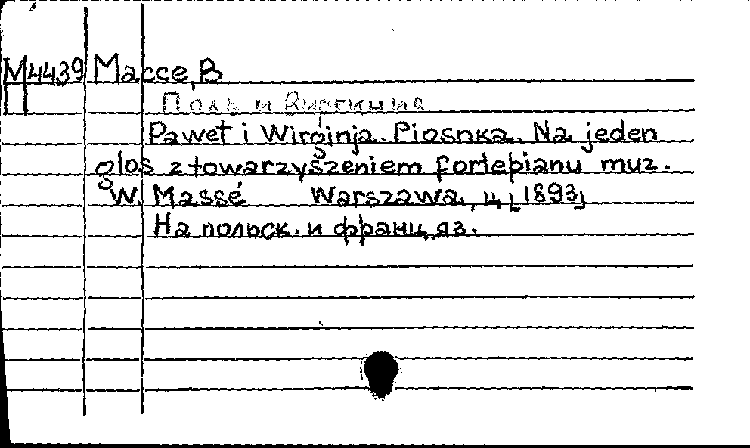 М4439 Массе, В
П
Поль и Виргиния
Paweł i Wirginja. Piosnka. Na jeden
glos z towarzyszeniem fortepianu muz.
W. Massé Warszawa, ц. [1893]
На польск. и франц. яз.